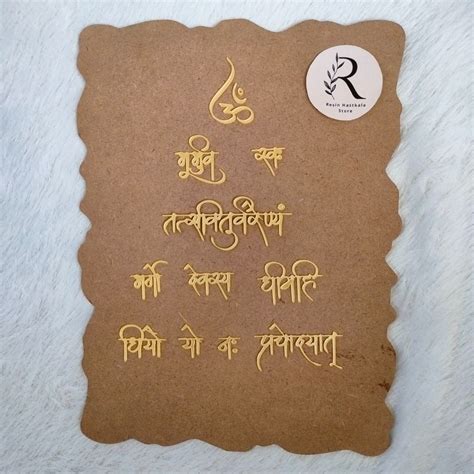 ॐ
R
Resin Hastkala
Store
भूर्भुव स्वः
तत्सवितुर्वरेण्यं
भर्गो देवस्य धीमहि
धियो यो नः प्रचोदयात्